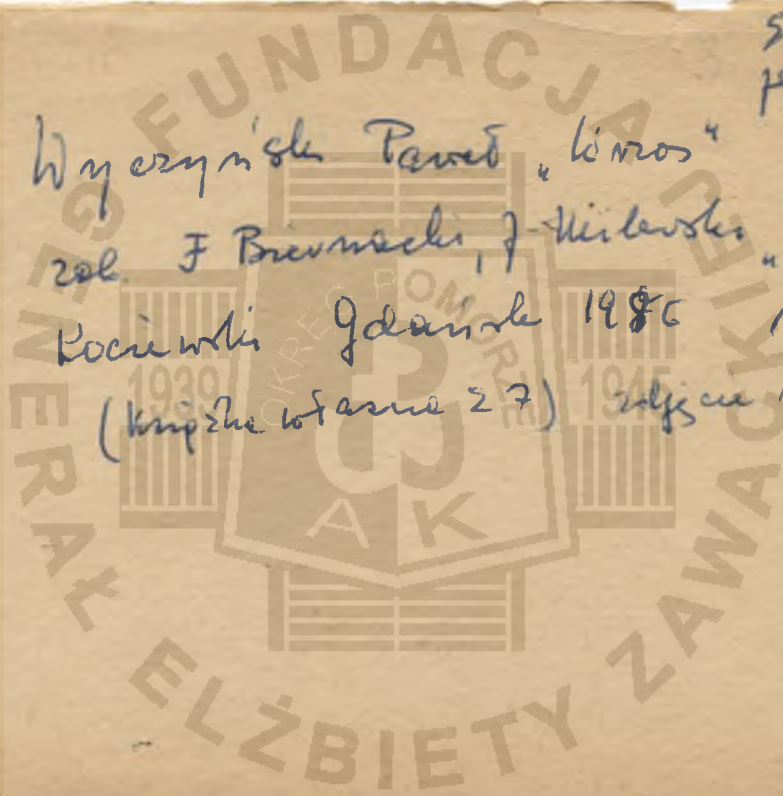 Wyczyński Paweł „Wrzos”
zob. F Biernacki, J Milewski „
Kociewski Gdańsk 1986
(książka własna 27) zdjęcie
FUNDACJA GENERAŁ ELŻBIETY ZAWACKIEJ
OKRĘG POMORZE
1939 1945
AK